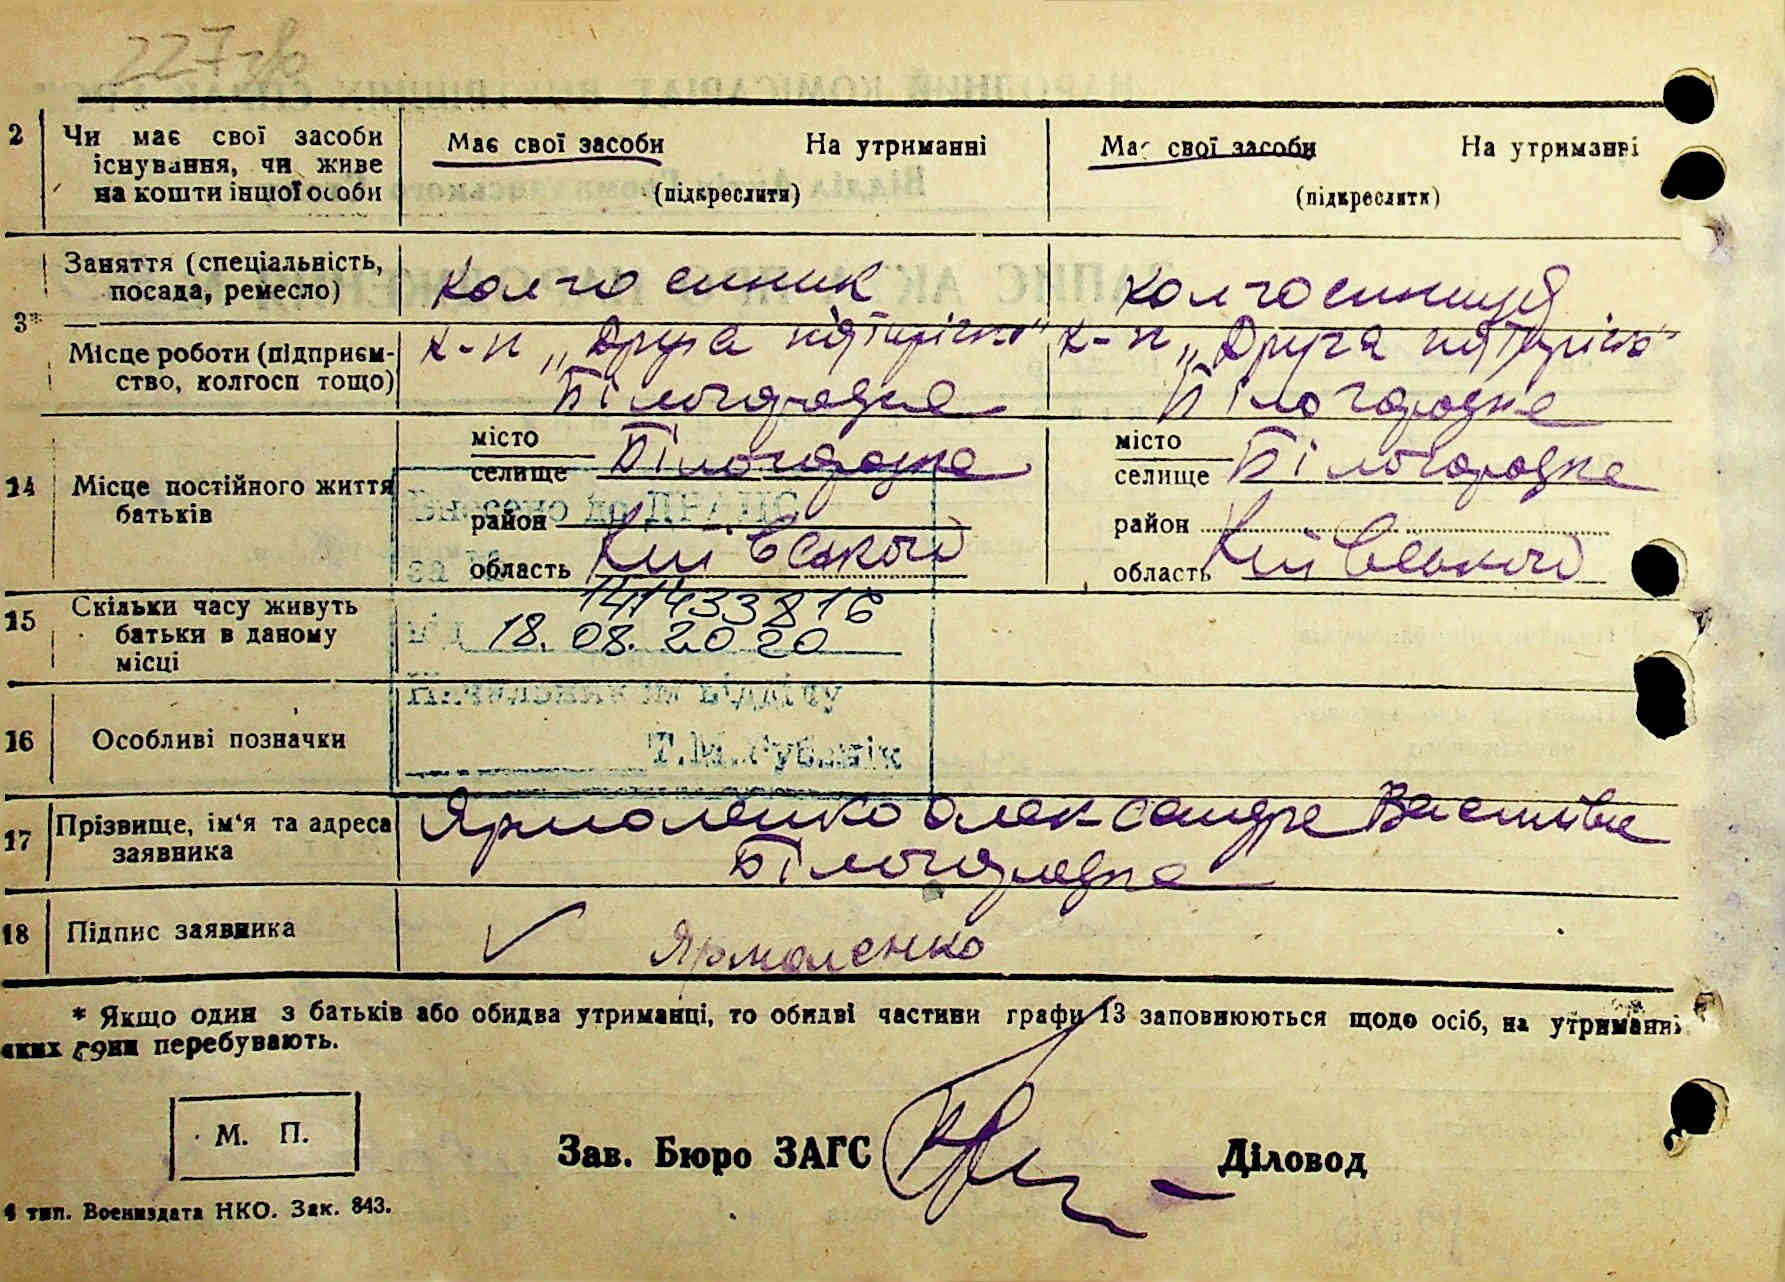 227 зв
2 Чи має свої засоби існування, чи живе на кошти іншої особи
Має свої засоби На утриманні
(підкреслити)
Має свої засоби На утриманні
(підкреслити)
3* Заняття (спеціальність, посада, ремесло)
Колгоспник
Колгоспниця
Місце роботи (підприємство, колгосп тощо)
к-п „Друга п'ятирічка"
Білогородка
к-п „Друга п'ятирічка"
Білогородка
14 Місце постійного життя батьків
місто
селище Білогородка
район
область Київського
місто
селище Білогородка
район
область Київського
15 Скільки часу живуть батьки в даному місці
1414433816
18.08.2020
16 Особливі позначки
Т.М.
17 Прізвище, ім'я та адреса заявника
Ярмоленко Олександра Василівна
Білогородка
18 Підпис заявника
Ярмоленко
* Якщо один з батьків або обидва утриманці, то обидві частини графи 13 заповнюються щодо осіб, на утриманні
яких вони перебувають.
М. П.
Зав. Бюро ЗАГС Діловод
4 тип. Воениздата НКО. Зак. 843.